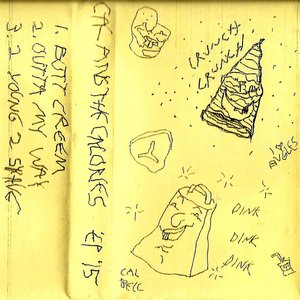 1. BUTT CREEM
2. OUTTA MY WAY
3. 2 YOUNG 2 SK8
CAL AND THE CALORIES EP '15
CRUNCH
CRUNCH
DINK
DINK
DINK
CAL
BELL